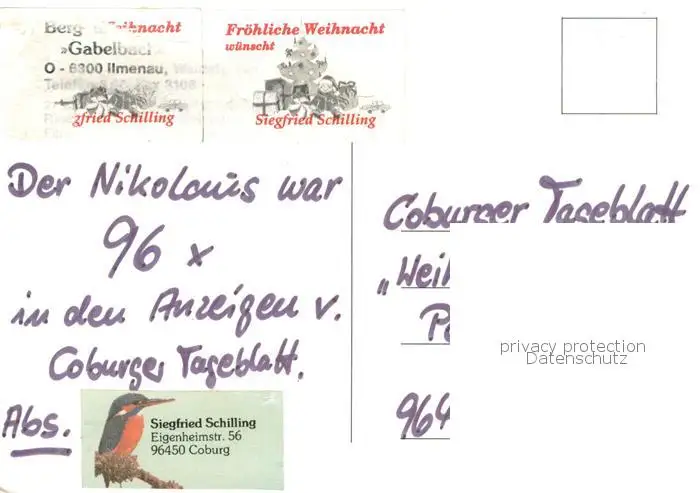 Berg-
Weihnacht
»Gabelbach«
O - 6300 Ilmenau,
zfried Schilling
Fröhliche Weihnacht
wünscht
Siegfried Schilling
Der Nikolaus war
96 x
in den Anzeigen v.
Coburger Tageblatt.
Abs.
Siegfried Schilling
Eigenheimstr. 56
96450 Coburg
Coburger Tageblatt
"Wei
P
964
privacy protection
Datenschutz